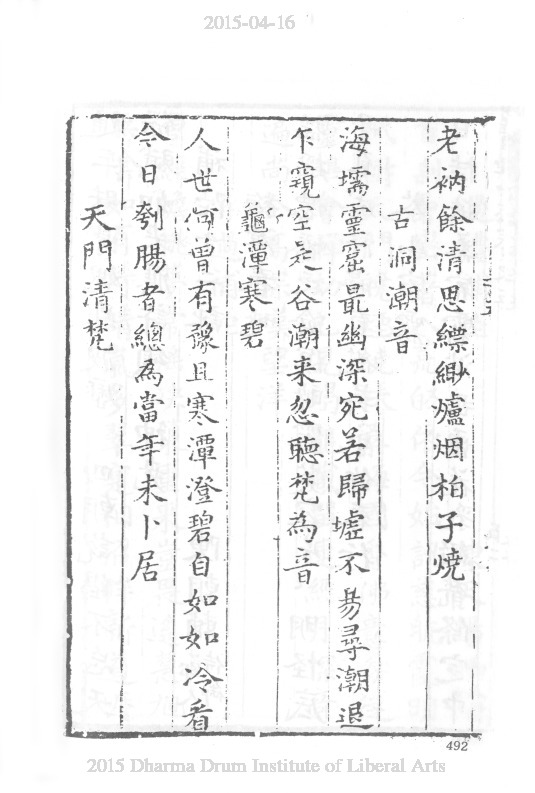 2015-04-16
老衲餘清思縹緲爐烟柏子燒
古洞潮音
海壖靈窟最幽深宛若歸墟不易尋潮退
乍窺空是谷潮来忽聽梵為音
龜潭寒碧
人世何曾有豫且寒潭澄碧自如如冷看
今日刳腸者總為當年未卜居
天門清梵
492
2015 Dharma Drum Institute of Liberal Arts